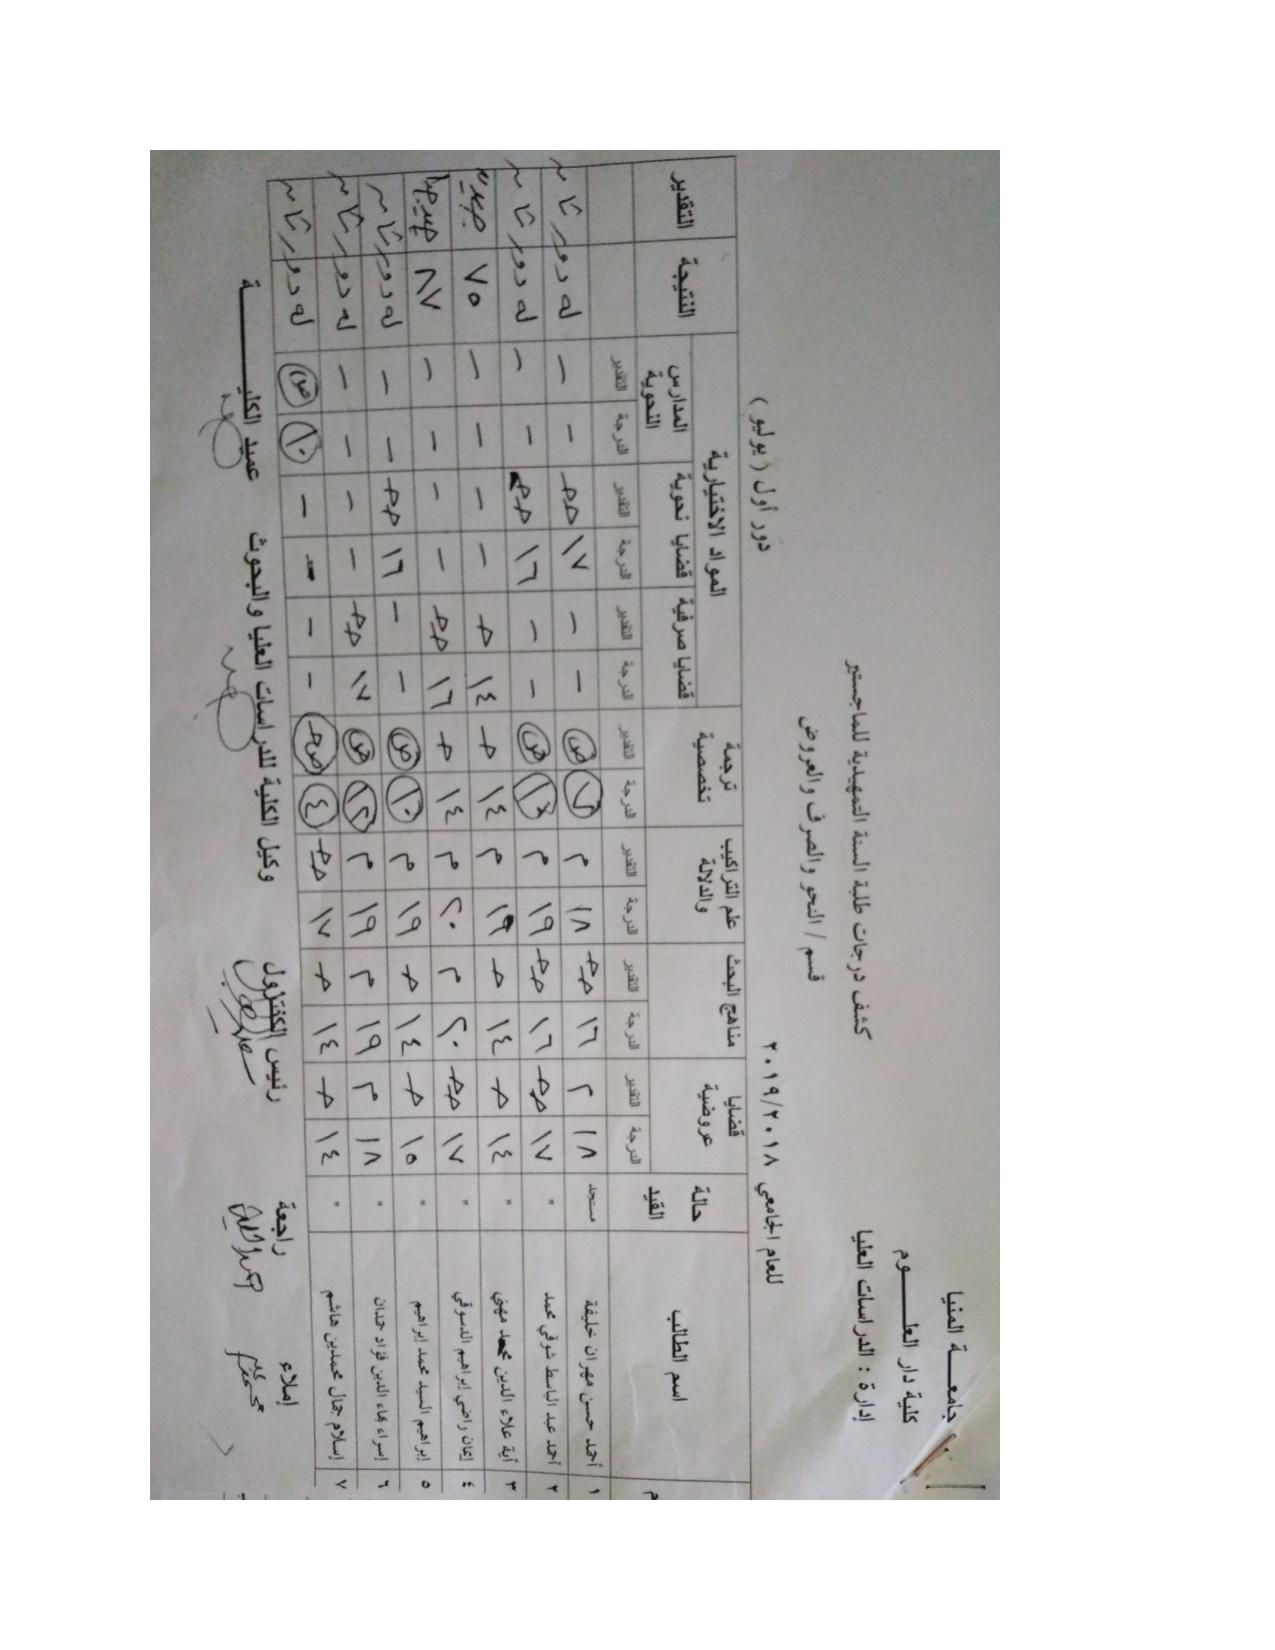 جامعــــة المنيا
كلية دار العلــــــوم
إدارة : الدراسات العليا
كشف درجات طلبة السنة التمهيدية للماجستير
قسم / النحو والصرف والعروض
للعام الجامعي ٢٠١٩/٢٠١٨ دور أول ( يوليو )
م اسم الطالب حالة القيد قضايا عروضية مناهج البحث علم التراكيب والدلالة ترجمة تخصصية المواد الاختيارية النتيجة التقدير
قضايا صرفية قضايا نحوية المدارس النحوية
الدرجة التقدير الدرجة التقدير الدرجة التقدير الدرجة التقدير الدرجة التقدير الدرجة التقدير الدرجة التقدير
١ أحمد حسن مهران خليفة مستجد ١٨ م ١٦ جج ١٨ م ض - - ١٧ جج - - له دور ثان
٢ أحمد عبد الباسط شوقي محمد " ١٧ جج ١٦ جج ١٩ م ض - - ١٦ جج - - له دور ثان
٣ آية علاء الدين محمد مهني " ١٤ ج ١٤ ج ١٩ م ١٤ ج ١٤ ج - - - - ٧٥ جيد
٤ إيمان راضي إبراهيم الدسوقي " ١٧ جج ٢٠ م ٢٠ م ١٤ ج ١٦ جج - - - - ٨٧ جيد جدا
٥ إبراهيم السيد محمد إبراهيم " ١٥ ج ١٤ ج ١٩ م ١٠ ض - - ١٦ جج - - له دور ثان
٦ إسراء بهاء الدين فؤاد حمدان " ١٨ م ١٩ م ١٩ م ض ١٧ جج - - - - له دور ثان
٧ إسلام جمال محمدين هاشم " ١٤ ج ١٤ ج ١٧ جج ٤ ض ج - - - - ١٠ ض له دور ثان
إملاء راجعة رئيس الكنترول وكيل الكلية للدراسات العليا والبحوث عميد الكليـــــــــــة